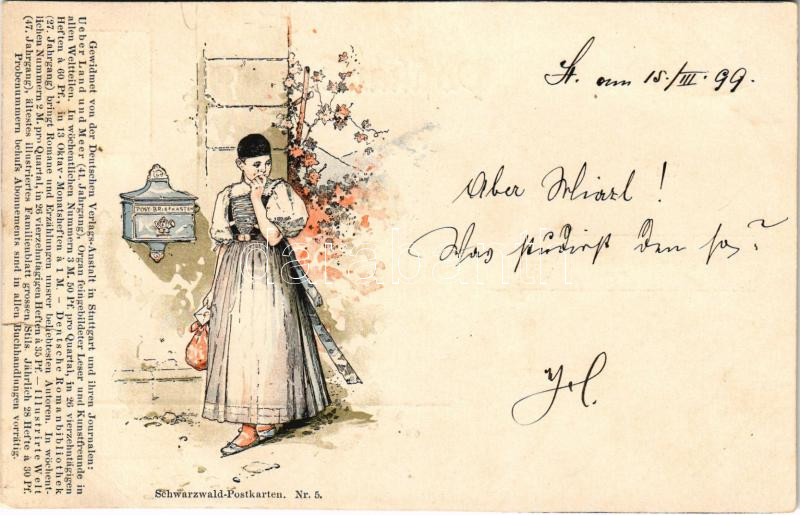 Gewidmet von der Deutschen Verlags-Anstalt in Stuttgart und ihren Journalen:
Ueber Land und Meer (41. Jahrgang), Organ feingebildeter Leser und Kunstfreunde in
allen Weltteilen. In wöchentlichen Nummern 3 M. 50 Pf. pro Quartal, in 26 vierzehntägigen
Heften à 60 Pf., in 13 Oktav-Monatsheften à 1 M. – Deutsche Romanbibliothek
(27. Jahrgang) bringt Romane und Erzählungen unsrer beliebtesten Autoren. In wöchent-
lichen Nummern 2 M. pro Quartal, in 26 vierzehntägigen Heften à 35 Pf. – Illustrirte Welt
(47. Jahrgang), ältestes illustriertes Familienblatt grossen Stils. Jährlich 28 Hefte à 30 Pf.
Probenummern behufs Abonnements sind in allen Buchhandlungen vorrätig.
POST-BRIEFKASTEN
St. am 15./III. 99.
Aber !
Was studirst den so?
Schwarzwald-Postkarten. Nr. 5.